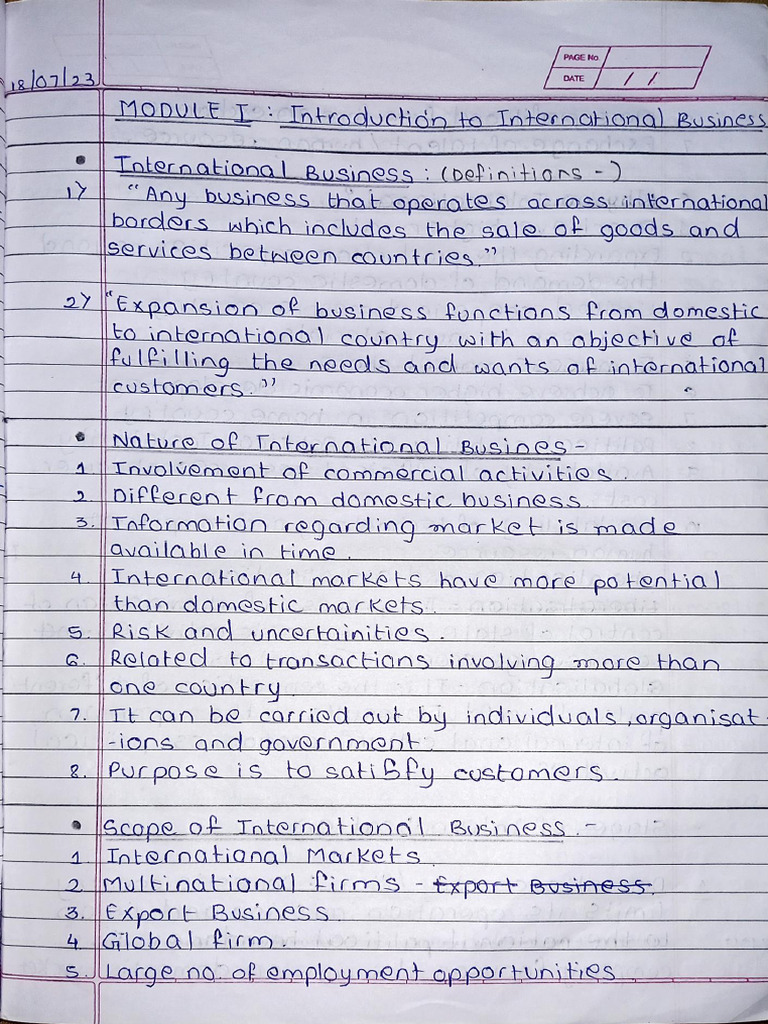 PAGE No.
DATE / /
18/07/23
MODULE I : Introduction to International Business
• International Business : (Definitions -)
1) "Any business that operates across international
borders which includes the sale of goods and
services between countries."
2) "Expansion of business functions from domestic
to international country with an objective of
fulfilling the needs and wants of international
customers."
• Nature of International Busines -
1 Involvement of commercial activities.
2. Different from domestic business.
3. Information regarding market is made
available in time.
4. International markets have more potential
than domestic markets.
5. Risk and uncertainities.
6. Related to transactions involving more than
one country
7. It can be carried out by individuals, organisat-
-ions and government.
8. Purpose is to satisfy customers.
• Scope of International Business. -
1. International Markets.
2. Multinational firms - Export Business.
3. Export Business
4. Global firm.
5. Large no. of employment opportunities